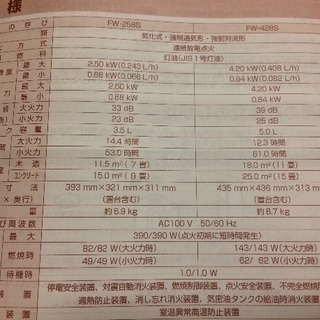 様
の 呼 び FW-258S FW-428S
類 気化式・強制通気形・強制対流形
方 式 連続放電点火
燃 料 灯油(JIS 1号灯油)
最 大 2.50 kW(0.243 L/h) 4.20 kW(0.408 L/h)
最 小 0.68 kW(0.066 L/h) 0.84 kW(0.082 L/h)
最 大 2.50 kW 4.20 kW
最 小 0.68 kW 0.84 kW
大火力 33 dB 39 dB
小火力 23 dB 23 dB
ク 容 量 3.5 L 5.0 L
大火力 14.4 時間 12.3 時間
小火力 53.0 時間 61.0 時間
木 造 11.5 m²(7 畳) 18.0 m²(11 畳)
コンクリート 15.0 m²(9 畳) 25.0 m²(15 畳)
寸 法 393 mm×321 mm×311 mm 435 mm×436 mm×313 m
×奥行) (置台含む) (置台含む)
量 約 6.9 kg 約 8.7 kg
び 周 波 数 AC100 V 50/60 Hz
最 大 390/390 W(点火初期に短時間発生)
燃焼時 82/82 W(大火力時) 143/143 W(大火力時)
49/49 W(小火力時) 62/ 62 W(小火力時)
待機時 1.0/1.0 W
装 置 停電安全装置、対震自動消火装置、燃焼制御装置、点火安全装置、不完全燃焼
過熱防止装置、消し忘れ消火装置、気密油タンクの給油時消火装置
装置 室温異常高温防止装置